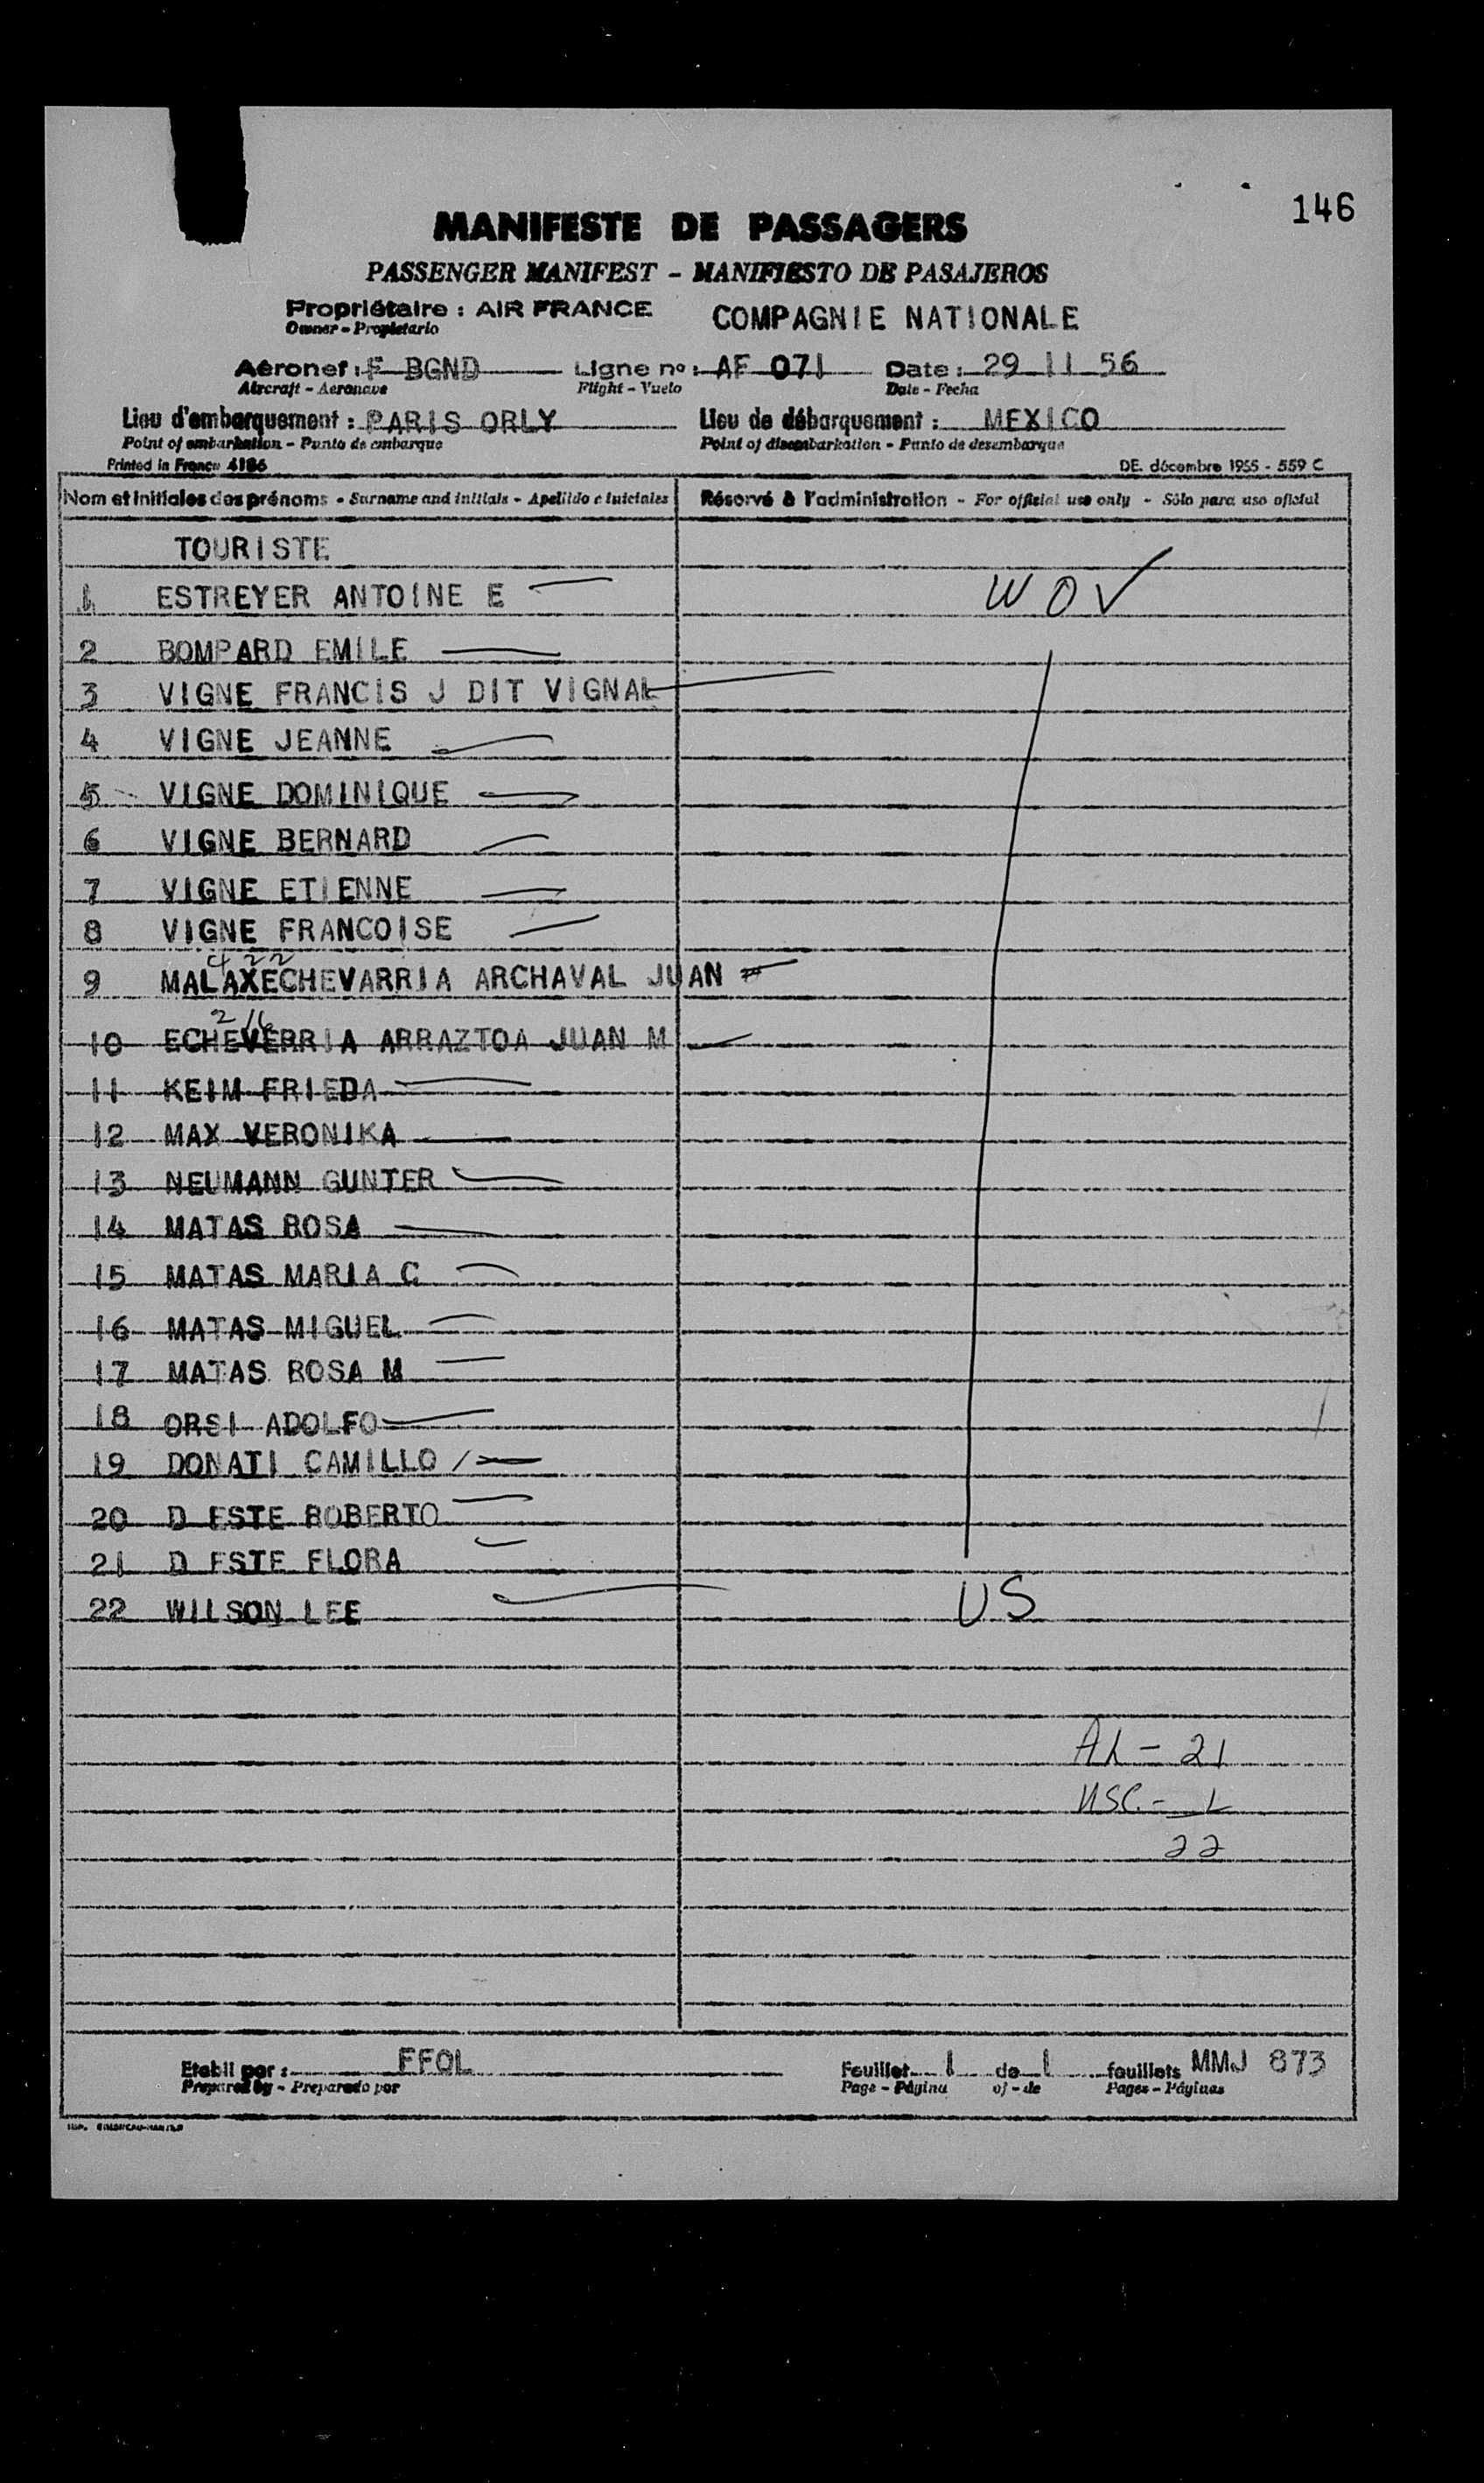 146
MANIFESTE DE PASSAGERS
PASSENGER MANIFEST - MANIFIESTO DE PASAJEROS
Propriétaire : AIR FRANCE COMPAGNIE NATIONALE
Owner - Propietario
Aéronef : F BGND Ligne no : AF 071 Date : 29 11 56
Aircraft - Aeronave Flight - Vuelo Date - Fecha
Lieu d'embarquement : PARIS ORLY Lieu de débarquement : MEXICO
Point of embarkation - Punto de embarque Point of disembarkation - Punto de desembarque
Printed in France 4186 DE. décembre 1955 - 559 C
Nom et initiales des prénoms - Surname and initials - Apellido e iniciales Réservé à l'administration - For official use only - Sólo para uso oficial
TOURISTE
1 ESTREYER ANTOINE E WOV
2 BOMPARD EMILE
3 VIGNE FRANCIS J DIT VIGNAL
4 VIGNE JEANNE
5 VIGNE DOMINIQUE
6 VIGNE BERNARD
7 VIGNE ETIENNE
8 VIGNE FRANCOISE
422
9 MALAXECHEVARRIA ARCHAVAL JUAN
216
10 ECHEVERRIA ARRAZTOA JUAN M
11 KEIM FRIEDA
12 MAX VERONIKA
13 NEUMANN GUNTER
14 MATAS ROSA
15 MATAS MARIA C
16 MATAS MIGUEL
17 MATAS ROSA M
18 ORSI ADOLFO
19 DONATI CAMILLO
20 D ESTE ROBERTO
21 D ESTE FLORA
22 WILSON LEE US
AL - 21
USC. - 1
22
Etabli par : FFOL Feuillet 1 de 1 feuillets MMJ 873
Prepared by - Preparado por Page - Página of - de Pages - Páginas